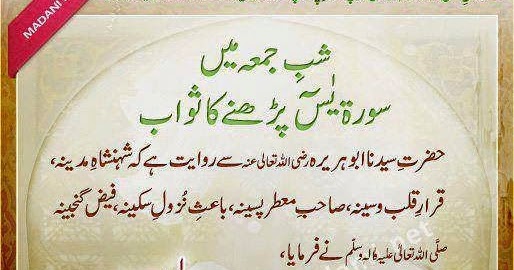 MADANI
شبِ جمعہ میں
سورۃ یٰسٓ پڑھنے کا ثواب
حضرتِ سیدنا ابو ہریرہ رضی اللہ تعالیٰ عنہ سے روایت ہے کہ شہنشاہِ مدینہ،
قرارِ قلب و سینہ، صاحبِ معطر پسینہ، باعثِ نُزولِ سکینہ، فیض گنجینہ
صلَّی اللہ تعالیٰ علیہ واٰلہٖ وسلَّم نے فرمایا،